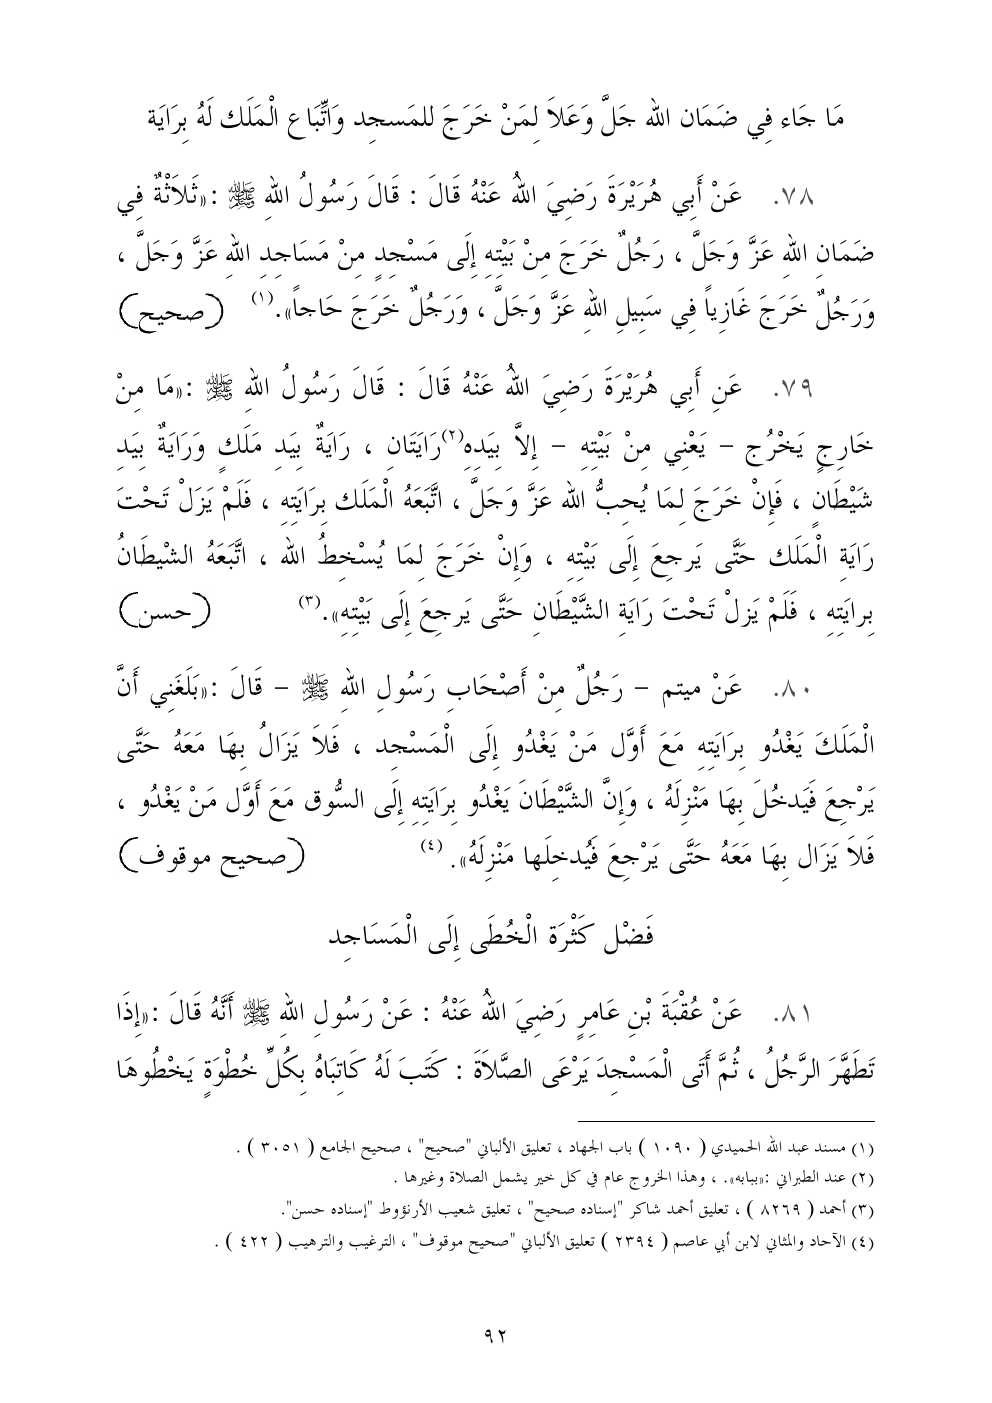 مَا جَاء فِي ضَمَان الله جَلَّ وَعَلاَ لِمَنْ خَرَجَ للمَسجِد وَاتِّبَاع الْمَلَك لَهُ بِرَايَة
٧٨. عَنْ أَبِي هُرَيْرَةَ رَضِيَ اللهُ عَنْهُ قَالَ : قَالَ رَسُولُ اللهِ ﷺ :«ثَلاَثَةٌ فِي
ضَمَانِ اللهِ عَزَّ وَجَلَّ ، رَجُلٌ خَرَجَ مِنْ بَيْتِهِ إِلَى مَسْجِدٍ مِنْ مَسَاجِدِ اللهِ عَزَّ وَجَلَّ ،
وَرَجُلٌ خَرَجَ غَازِياً فِي سَبِيلِ اللهِ عَزَّ وَجَلَّ ، وَرَجُلٌ خَرَجَ حَاجاً».(١) (صحيح)
٧٩. عَنِ أَبِي هُرَيْرَةَ رَضِيَ اللهُ عَنْهُ قَالَ : قَالَ رَسُولُ اللهِ ﷺ :«مَا مِنْ
خَارِجٍ يَخْرُج – يَعْنِي مِنْ بَيْتِهِ – إِلاَّ بِيَدِهِ(٢)رَايَتَانِ ، رَايَةٌ بِيَدِ مَلَكٍ وَرَايَةٌ بِيَدِ
شَيْطَانٍ ، فَإِنْ خَرَجَ لِمَا يُحِبُّ الله عَزَّ وَجَلَّ ، اتَّبَعَهُ الْمَلَك بِرَايَتِهِ ، فَلَمْ يَزَلْ تَحْتَ
رَايَةِ الْمَلَك حَتَّى يَرجِعَ إِلَى بَيْتِهِ ، وَإِنْ خَرَجَ لِمَا يُسْخِطُ الله ، اتَّبَعَهُ الشيْطَانُ
بِرايَتِهِ ، فَلَمْ يَزلْ تَحْتَ رَايَةِ الشَّيْطَانِ حَتَّى يَرجِعَ إِلَى بَيْتِهِ».(٣) (حسن)
٨٠. عَنْ ميتم – رَجُلٌ مِنْ أَصْحَابِ رَسُولِ اللهِ ﷺ – قَالَ :«بَلَغَنِي أَنَّ
الْمَلَكَ يَغْدُو بِرَايَتِهِ مَعَ أَوَّلِ مَنْ يَغْدُو إِلَى الْمَسْجِدِ ، فَلاَ يَزَالُ بِهَا مَعَهُ حَتَّى
يَرْجِعَ فَيَدخُلَ بِهَا مَنْزِلَهُ ، وَإِنَّ الشَّيْطَانَ يَغْدُو بِرَايَتِهِ إِلَى السُّوقِ مَعَ أَوَّلِ مَنْ يَغْدُو ،
فَلاَ يَزَال بِهَا مَعَهُ حَتَّى يَرْجِعَ فَيُدخِلَها مَنْزِلَهُ». (٤) (صحيح موقوف)
فَضْل كَثْرَة الْخُطَى إِلَى الْمَسَاجِد
٨١. عَنْ عُقْبَةَ بْنِ عَامِرٍ رَضِيَ اللهُ عَنْهُ : عَنْ رَسُولِ اللهِ ﷺ أَنَّهُ قَالَ :«إِذَا
تَطَهَّرَ الرَّجُلُ ، ثُمَّ أَتَى الْمَسْجِدَ يَرْعَى الصَّلاَةَ : كَتَبَ لَهُ كَاتِبَاهُ بِكُلِّ خُطْوَةٍ يَخْطُوهَا
(١) مسند عبد الله الحميدي ( ١٠٩٠ ) باب الجهاد ، تعليق الألباني "صحيح" ، صحيح الجامع ( ٣٠٥١ ) .
(٢) عند الطبراني :«ببابه». ، وهذا الخروج عام في كل خير يشمل الصلاة وغيرها .
(٣) أحمد ( ٨٢٦٩ ) ، تعليق أحمد شاكر "إسناده صحيح" ، تعليق شعيب الأرنؤوط "إسناده حسن".
(٤) الآحاد والمثاني لابن أبي عاصم ( ٢٣٩٤ ) تعليق الألباني "صحيح موقوف" ، الترغيب والترهيب ( ٤٢٢ ) .
٩٢